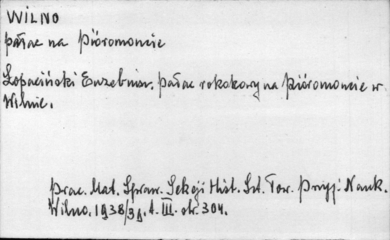 WILNO
pałac na Pióromoncie
Łopaciński Euzebiusz. pałac rokokowy na Pióromoncie w
Wilnie.
Prac. Mat. Spraw. Sekcji Hist. Szt. Tow. Przyj. Nauk.
Wilno. 1938/39. t. III. str. 304.